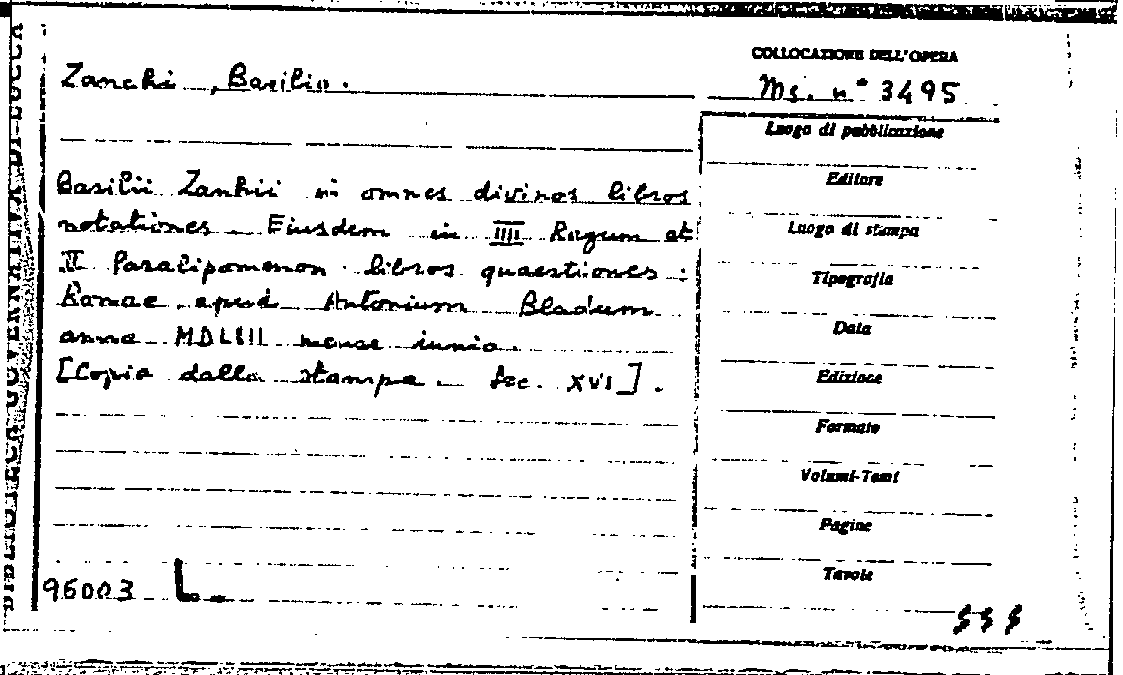 BIBLIOTECA GOVERNATIVA DI LUCCA
Zanchi, Basilio.
COLLOCAZIONE DELL'OPERA
Ms. n° 3495
Basilii Zanhii in omnes divinos libros
notationes - Eiusdem in IIII Regum et
II Paralipomenon libros quaestiones:
Romae apud Antonium Bladum
anno MDLIII mense iunio.
[Copia dalla stampa - Sec. XVI].
Luogo di pubblicazione
Editore
Luogo di stampa
Tipografia
Data
Edizione
Formato
Volumi-Tomi
Pagine
Tavole
96003